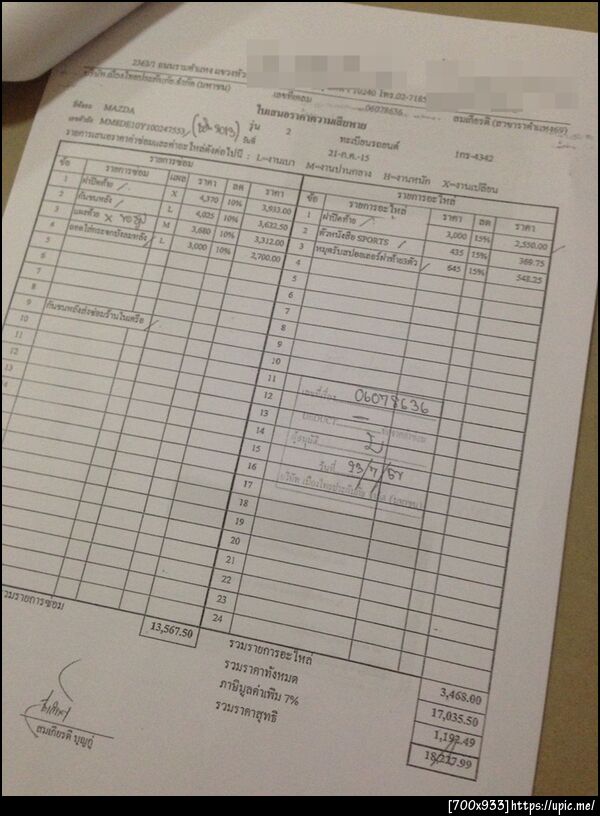 2363/1 ถนนรามคำแหง แขวงหัว
10240 โทร.02-7185
บริษัท เมืองไทยประกันภัย จำกัด (มหาชน)
เลขที่เคลม 06078636
สมเกียรติ (สาขารามคำแหง69)
ใบเสนอราคาความเสียหาย
ยี่ห้อรถ MAZDA รุ่น 2 ทะเบียนรถยนต์ 1กร-4342
เลขตัวถัง MM8DE10Y100247553 (ปี 2013) วันที่ 21-ก.ค.-15
รายการเสนอราคาค่าซ่อมและค่าอะไหล่ดังต่อไปนี้ : L=งานเบา M=งานปานกลาง H=งานหนัก X=งานเปลี่ยน
รายการซ่อม
ข้อ รายการซ่อม แผล ราคา ลด ราคา
1 ฝาปิดท้าย X 4,370 10% 3,933.00
2 กันชนหลัง L 4,025 10% 3,622.50
3 แผงท้าย M 3,680 10% 3,312.00
4 ถอดใส่กระจกบังลมหลัง L 3,000 10% 2,700.00
5
6
7
8
9 กันชนหลังส่งซ่อมร้านในเครือ
10
11
12
13
14
รวมรายการซ่อม 13,567.50
รายการอะไหล่
ข้อ รายการอะไหล่ ราคา ลด ราคา
1 ฝาปิดท้าย 3,000 15% 2,550.00
2 ตัวหนังสือ SPORTS 435 15% 369.75
3 หมุดรับสปอยเลอร์ฝาท้าย3ตัว 645 15% 548.25
4
5
6
7
8
9
10
11
12
13
14
15
16
17
18
19
20
21
22
23
24
เลขที่เรื่อง 06078636
DEDUCT
ผู้อนุมัติ
วันที่
บริษัท เมืองไทยประกันภัย จำกัด (มหาชน)
รวมรายการอะไหล่ 3,468.00
รวมราคาทั้งหมด 17,035.50
ภาษีมูลค่าเพิ่ม 7% 1,192.49
รวมราคาสุทธิ 18,227.99
สมเกียรติ บุญภู่
[700x933]https://upic.me/